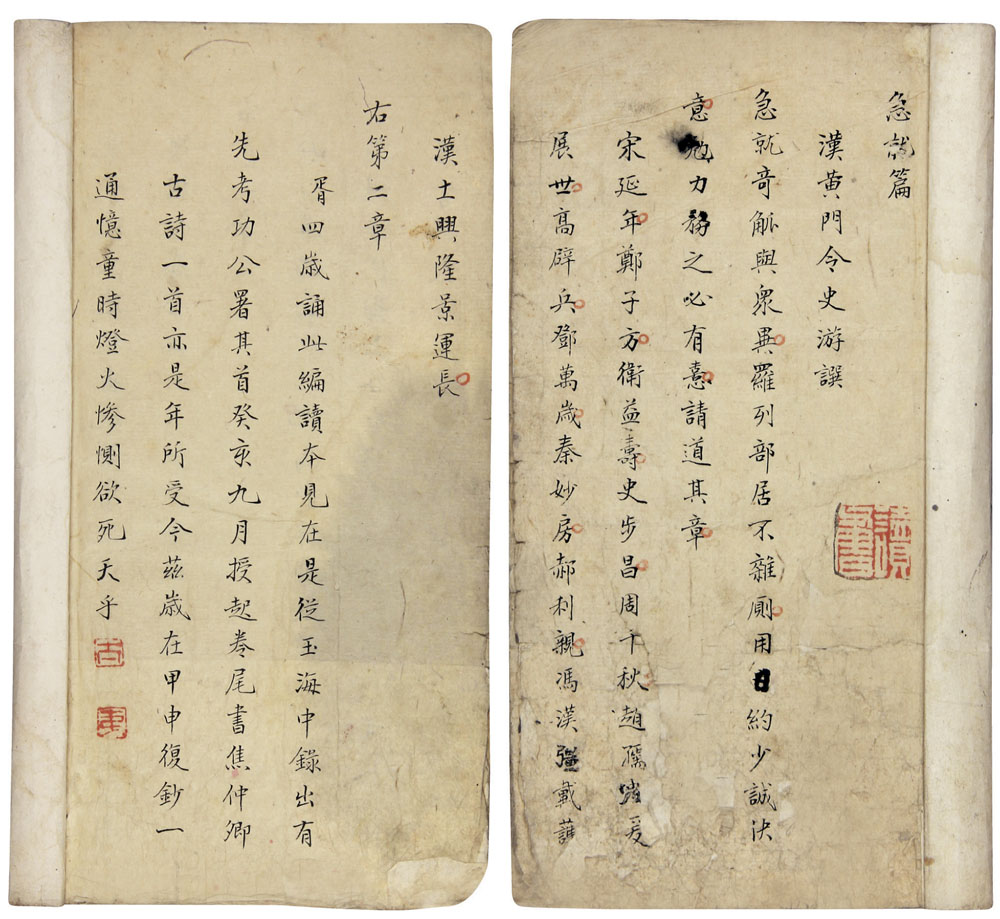 急就篇
漢黃門令史游譔
急就奇觚與眾異羅列部居不雜廁用日約少誠決
意勉力務之必有憙請道其章
宋延年鄭子方衛益壽史步昌周千秋趙孺 爰
展世高辟兵鄧萬歲秦妙房郝利親馮漢彊戴護
漢土興隆景運長
右第二章
胥四歲誦此編讀本見在是從玉海中錄出有
先考功公署其首癸亥九月授起卷尾書焦仲卿
古詩一首亦是年所受今茲歲在甲申復鈔一
通憶童時燈火慘惻欲死天乎